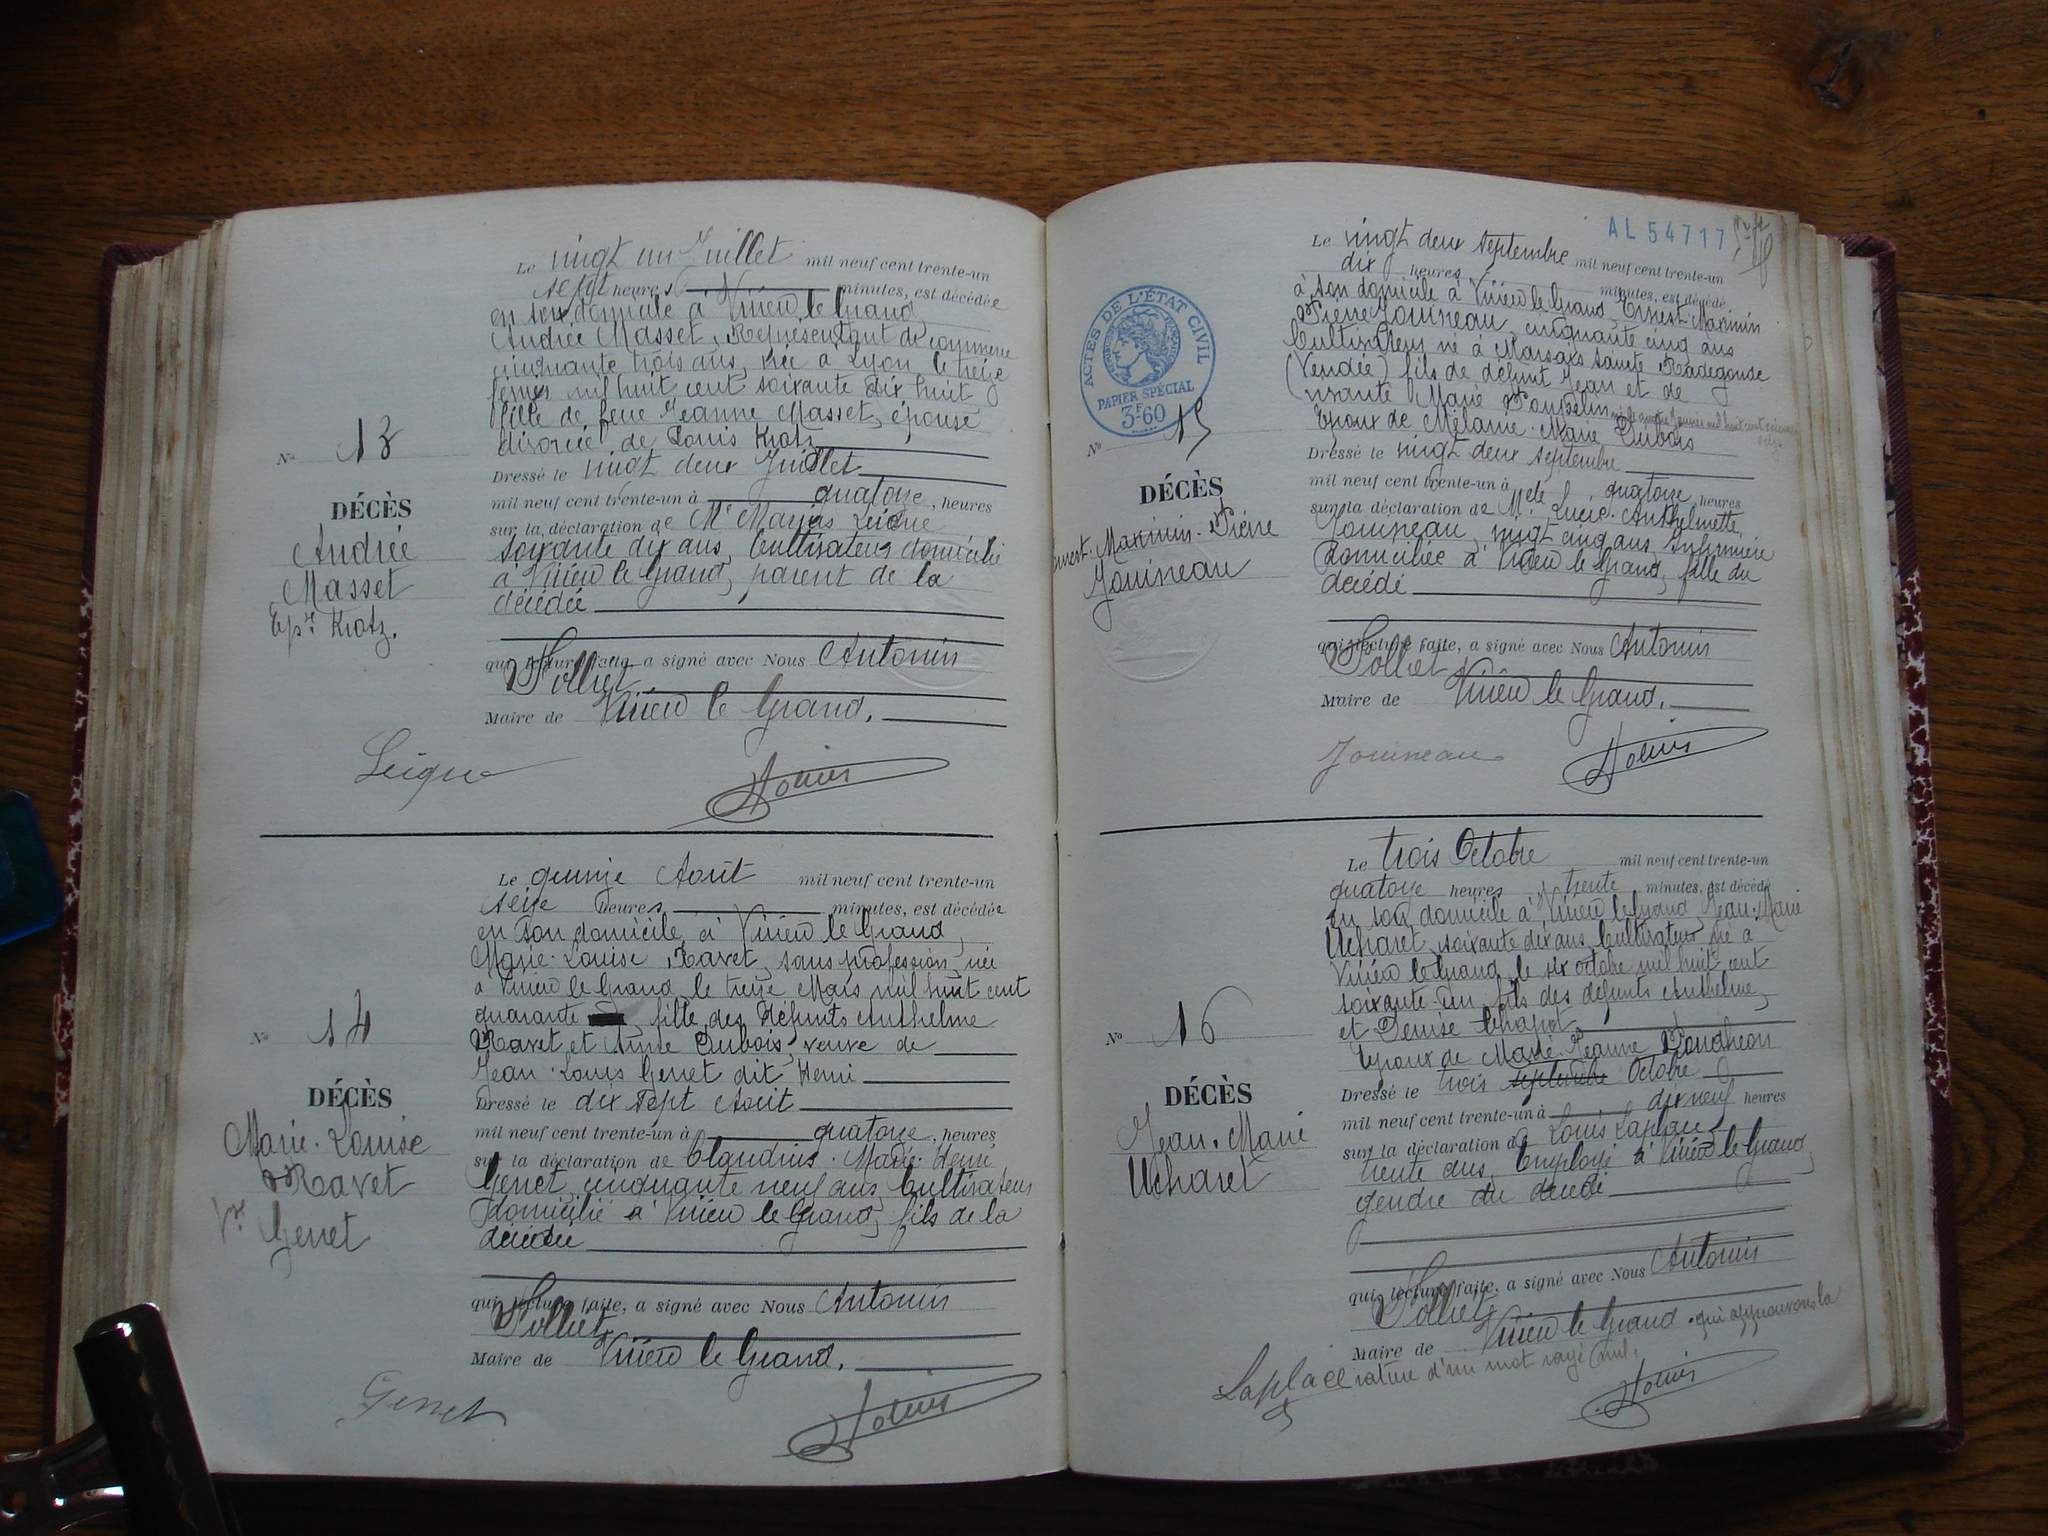 Le vingt un Juillet mil neuf cent trente-un
sept heures minutes, est décédée
en son domicile à Virieu le Grand
Andrée Masset, Représentant de commerce
cinquante trois ans, née à Lyon le treize
février mil huit cent soixante dix huit
fille de feue Jeanne Masset, épouse
divorcée de Louis Kratz
Dressé le vingt deux Juillet
mil neuf cent trente-un à quatorze, heures
sur la déclaration de Mr Marius
soixante dix ans, Cultivateur domicilié
à Virieu le Grand, parent de la
décédée
qui lecture faite, a signé avec Nous Antonin
Maire de Virieu le Grand.
No 13
DÉCÈS
Andrée
Masset
Ep.se Kratz.
Le quinze Août mil neuf cent trente-un
seize heures minutes, est décédée
en son domicile, à Virieu le Grand,
Marie-Louise Ravet, sans profession, née
à Virieu le Grand le treize Mars mil huit cent
quarante, fille des défunts Anthelme
Ravet et Anne Dubois, veuve de
Jean-Louis Genet dit Henri
Dressé le dix sept Août
mil neuf cent trente-un à quatorze, heures
sur la déclaration de Claudius-Marie-Henri
Genet, cinquante neuf ans, Cultivateur
domicilié à Virieu le Grand, fils de la
décédée
qui lecture faite, a signé avec Nous Antonin
Maire de Virieu le Grand.
No 14
DÉCÈS
Marie-Louise
Ravet
Vve
Genet
Genet
AL 54717
ACTES DE L'ÉTAT CIVIL
PAPIER SPÉCIAL
3F60
Le vingt deux septembre mil neuf cent trente-un
dix heures minutes, est décédé
à son domicile à Virieu le Grand, Ernest-Maximin
Pierre Jouineau, cinquante cinq ans
Cultivateur né à Marsais Sainte Radegonde
(Vendée) fils de défunt Jean et de
vivante Marie
Epoux de Mélanie-Marie Dubois
Dressé le vingt deux septembre
mil neuf cent trente-un à quatorze, heures
sur la déclaration de Melle Lucie-Anthelmette
Jouineau, vingt cinq ans, Infirmière
domiciliée à Virieu le Grand, fille du
décédé
qui lecture faite, a signé avec Nous Antonin
Maire de Virieu le Grand.
No 15
DÉCÈS
Ernest-Maximin-Pierre
Jouineau
Jouineau
Le trois Octobre mil neuf cent trente-un
quatorze heures trente minutes, est décédé
en son domicile à Virieu le Grand, Jean-Marie
Ucharet, soixante dix ans, Cultivateur, né à
Virieu le Grand le six octobre mil huit cent
soixante-un, fils des défunts Anthelme,
et Denise Chapot
Epoux de Marie-Jeanne
Dressé le trois septembre Octobre
mil neuf cent trente-un à dix neuf heures
sur la déclaration de Louis Laplace
trente ans, Employé à Virieu le Grand,
gendre du décédé
qui lecture faite, a signé avec Nous Antonin
Maire de Virieu le Grand. qui approuvons la
rature d'un mot rayé nul.
No 16
DÉCÈS
Jean-Marie
Ucharet
Laplace